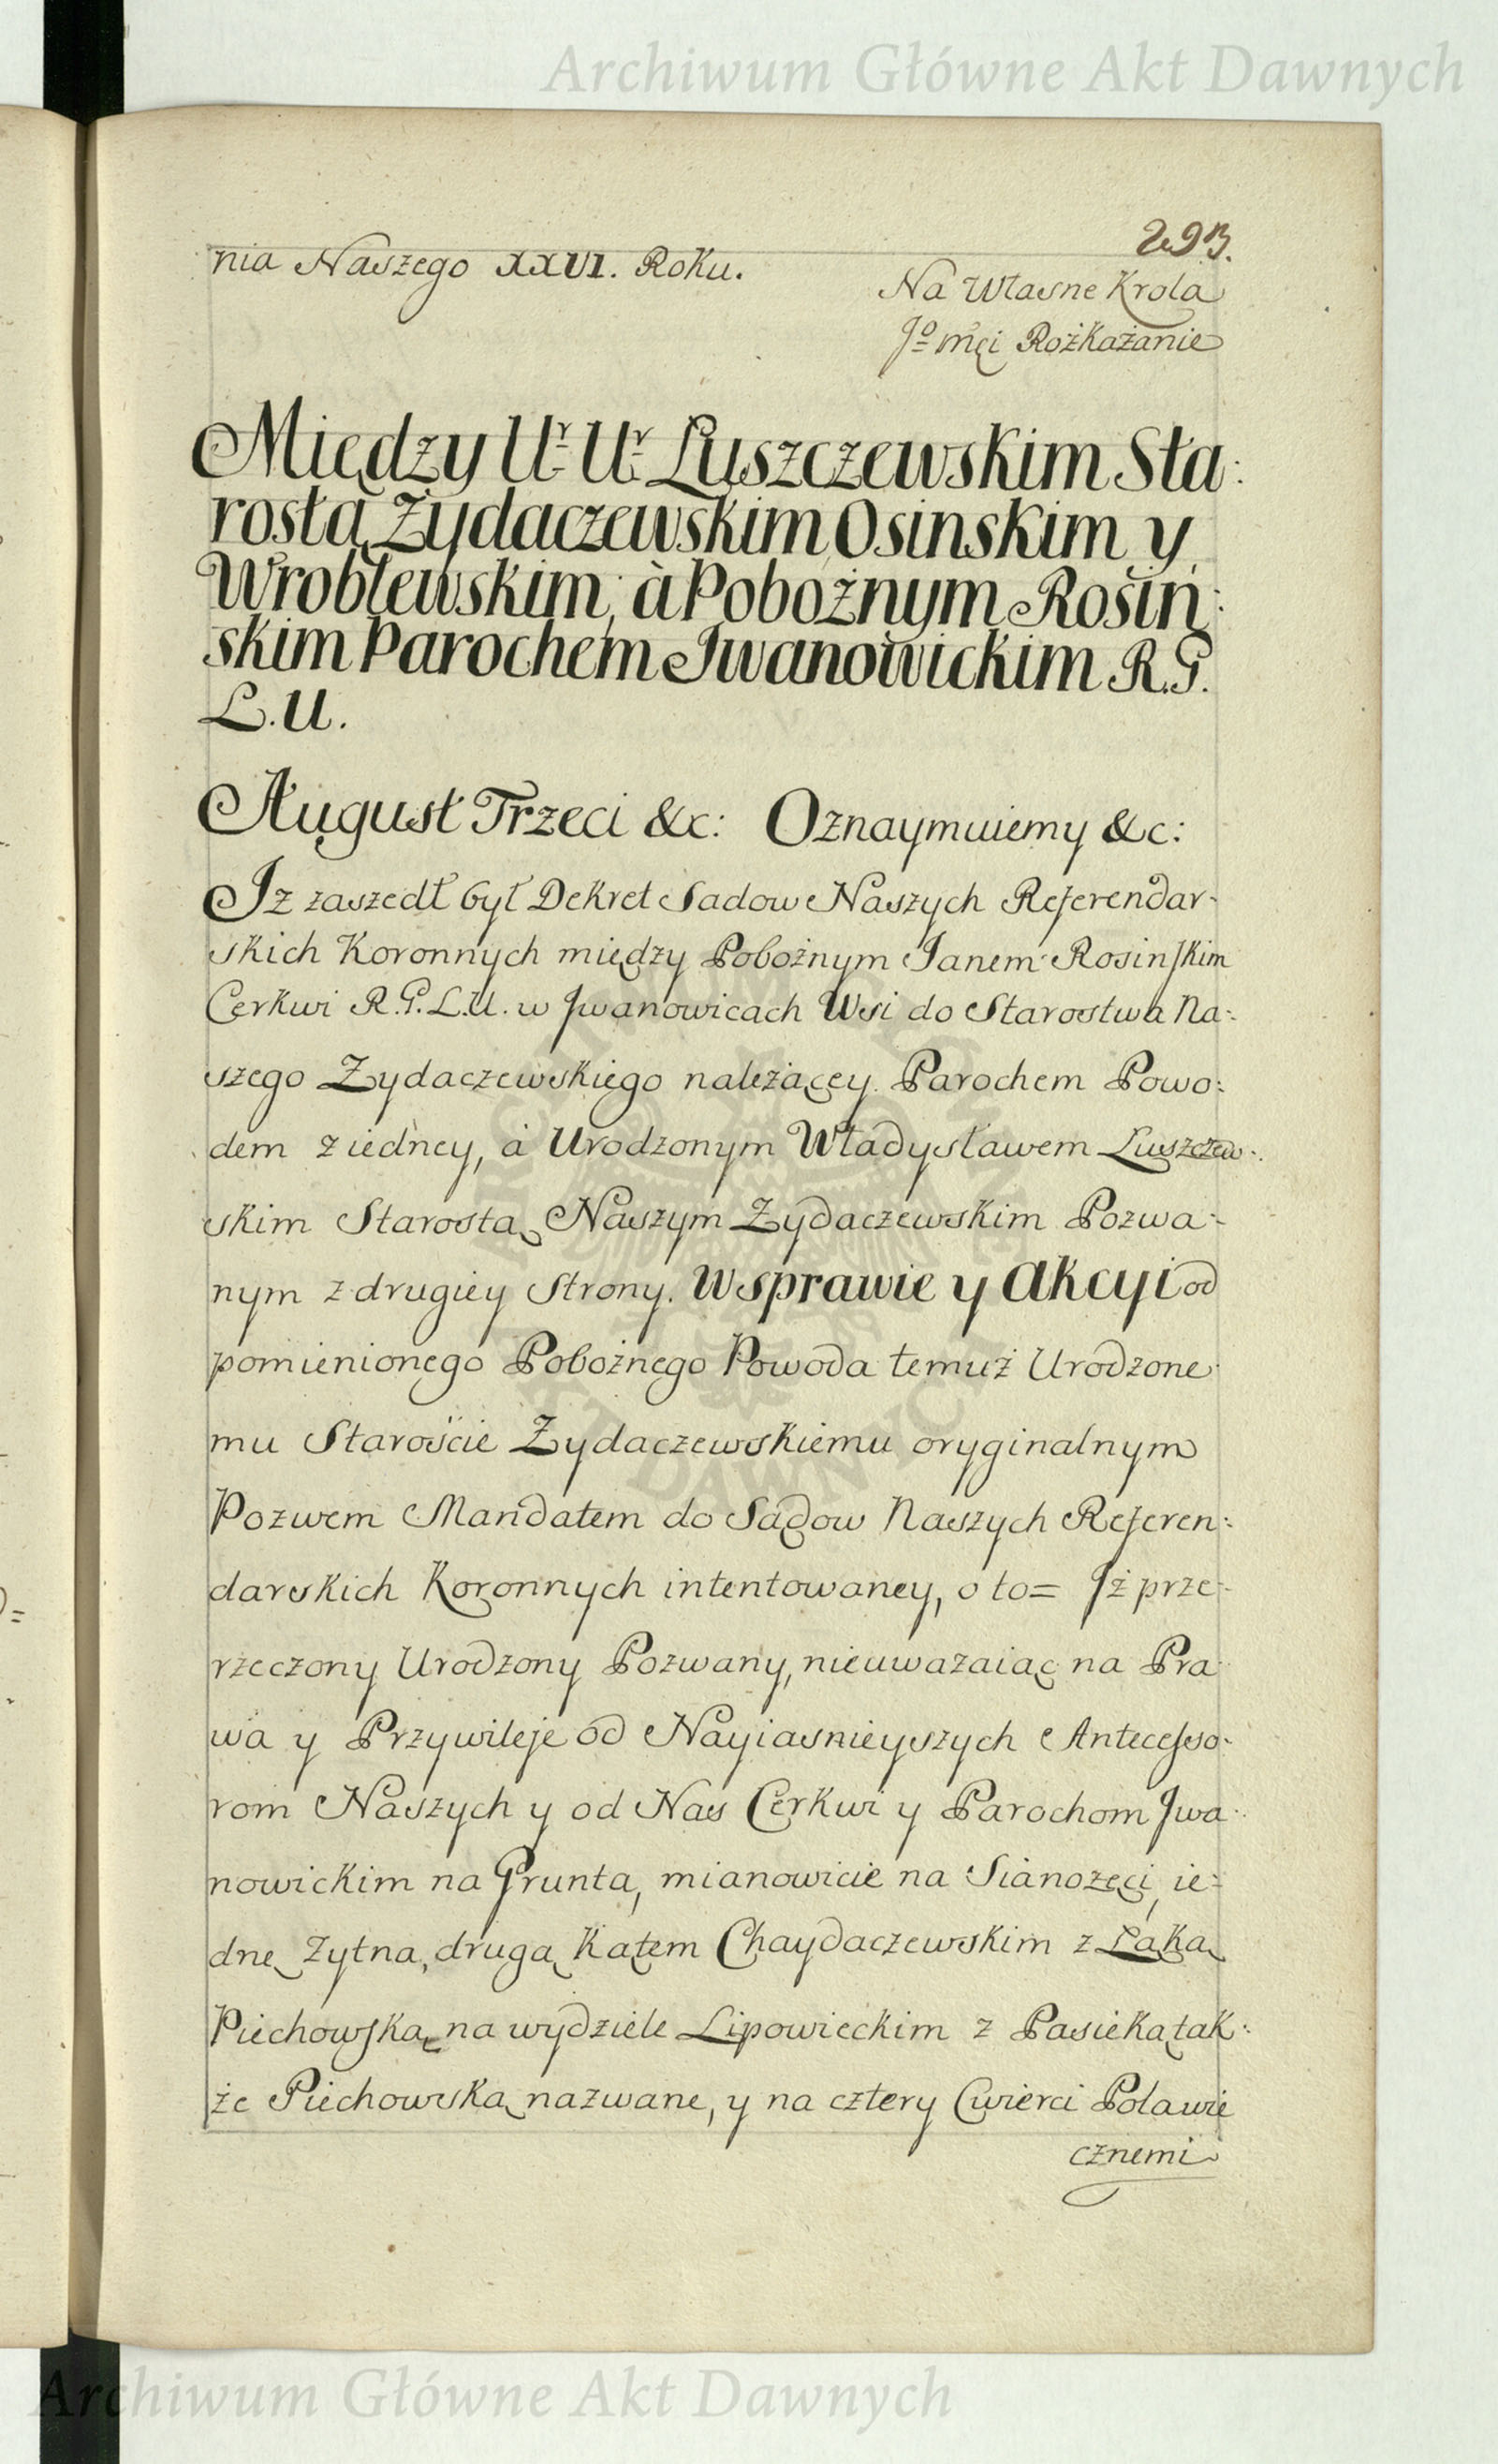 Archiwum Główne Akt Dawnych
293.
nia Naszego XXVI. Roku.
Na Własne Krola
Jo mći Rożkażanie
Między Ur Ur Luszczewskim Sta:
rostą Zydaczewskim Osinskim y
Wroblewskim, à Pobożnym Rosiń:
skim Parochem Jwanowickim R.G.
L.U.
August Trzeci &c: Oznaymuiemy &c:
Jz zaszedł był Dekret Sadow Naszych Referendar-
skich Koronnych między Pobożnym Janem Rosinskim
Cerkwi R.G.L.U. w Jwanowicach Wsi do Starostwa Na:
szego Zydaczewskiego należącey Parochem Powo:
dem z iedney, à Urodzonym Władysławem Luszczew:
skim Starostą Naszym Zydaczewskim Pozwa-
nym z drugiey Strony. W sprawie y Akcyi od
pomienionego Pobożnego Powoda temuż Urodzone
mu Staroście Zydaczewskiemu oryginalnym
Pozwem Mandatem do Sądow Naszych Referen:
darskich Koronnych intentowaney, o to= Jż prze-
rzeczony Urodzony Pozwany, nieuwazaiąc na Pra
wa y Przywileje od Nayiasnieyszych Antecesso-
rom Naszych y od Nas Cerkwi y Parochom Jwa-
nowickim na Grunta, mianowicie na Sianozęci, ie=
dnę Zytna, drugą Kątem Chaydaczewskim z Łąką
Piechowską na wydziele Lipowieckim z Pasieką tak:
że Piechowską nazwane, y na cztery Cwierci Pola wie
cznemi
Archiwum Główne Akt Dawnych